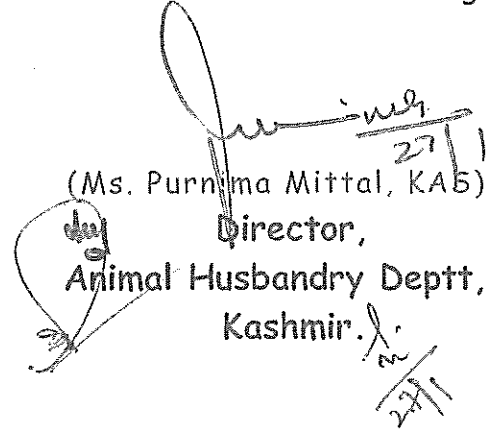 27/1
(Ms. Purnima Mittal, KAS)
Director,
Animal Husbandry Deptt,
Kashmir.
27/1